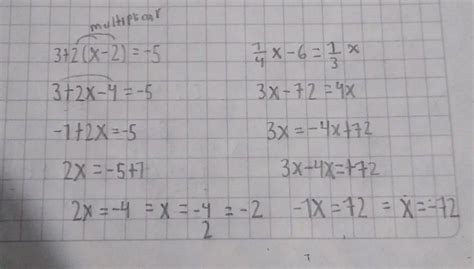 multiplicar
3+2(x-2)=-5
3+2x-4=-5
-1+2x=-5
2x=-5+1
2x=-4 =x=-4/2=-2
1/4 x-6=1/3 x
3x-72=4x
3x=-4x+72
3x-4x=+72
-1x=72 = x=-72